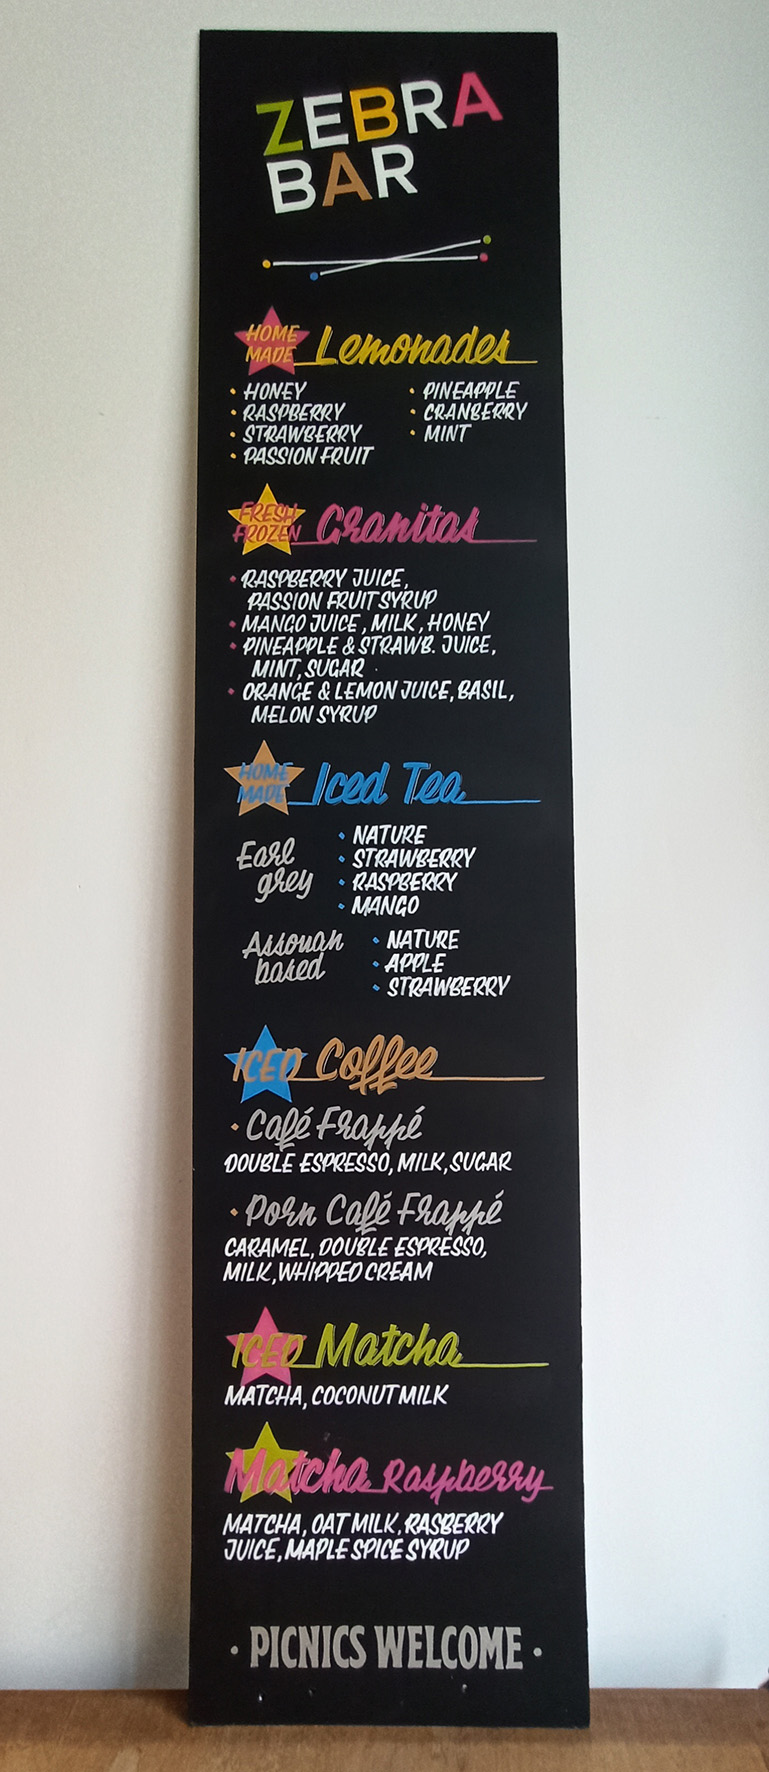 ZEBRA
BAR
HOME
MADE Lemonades
• HONEY
• RASPBERRY
• STRAWBERRY
• PASSION FRUIT
• PINEAPPLE
• CRANBERRY
• MINT
FRESH
FROZEN Granitas
• RASPBERRY JUICE,
PASSION FRUIT SYRUP
• MANGO JUICE, MILK, HONEY
• PINEAPPLE & STRAWB. JUICE,
MINT, SUGAR
• ORANGE & LEMON JUICE, BASIL,
MELON SYRUP
HOME
MADE Iced Tea
Earl
grey
• NATURE
• STRAWBERRY
• RASPBERRY
• MANGO
Assouan
based
• NATURE
• APPLE
• STRAWBERRY
ICED Coffee
• Café Frappé
DOUBLE ESPRESSO, MILK, SUGAR
• Porn Café Frappé
CARAMEL, DOUBLE ESPRESSO,
MILK, WHIPPED CREAM
ICED Matcha
MATCHA, COCONUT MILK
Matcha Raspberry
MATCHA, OAT MILK, RASBERRY
JUICE, MAPLE SPICE SYRUP
• PICNICS WELCOME •